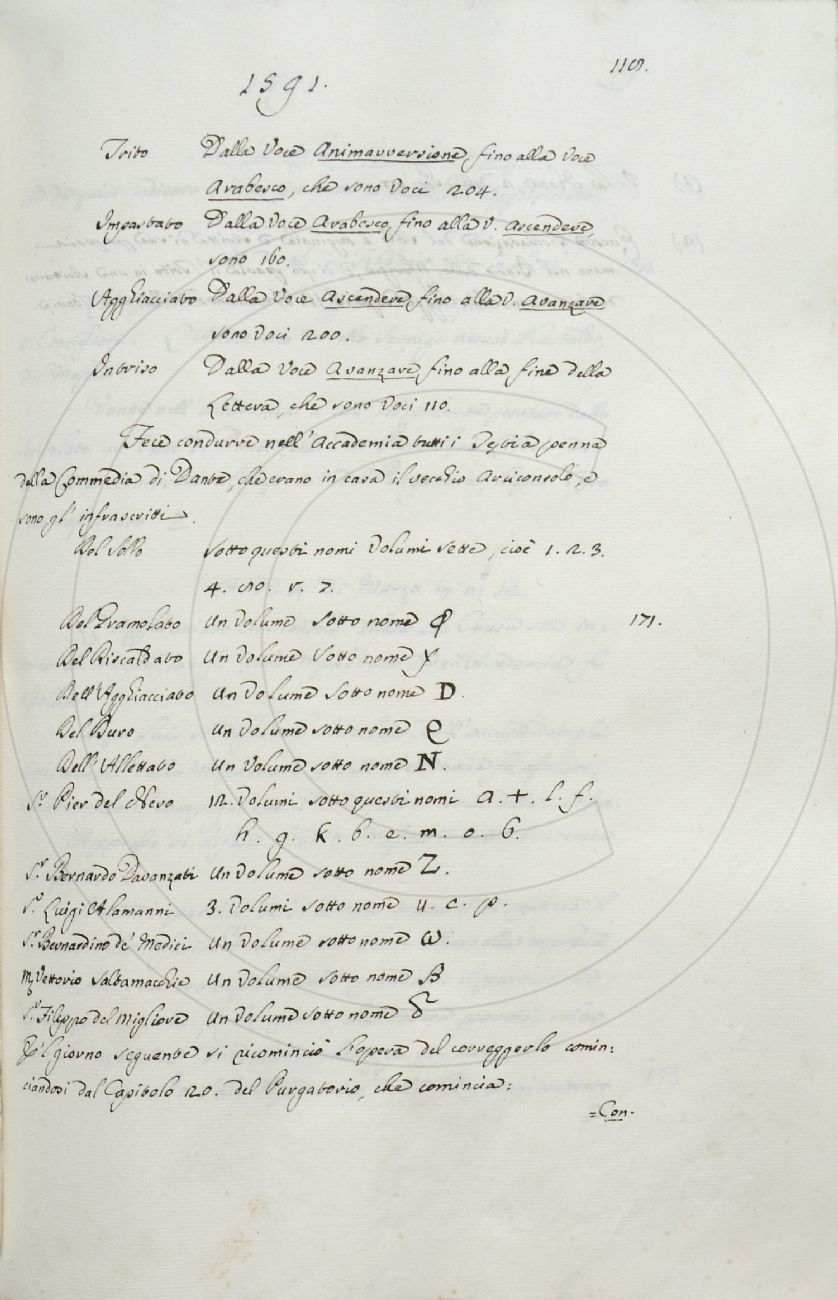 1591.
Trito Dalla Voce Animavversione, fino alla Voce
Arabesco, che sono Voci 204.
Impastato Dalla Voce Arabesco, fino alla V. ascendere,
sono 160.
Agghiacciato Dalla Voce Ascendere, fino alla V. avanzare
sono Voci 200.
Intriso Dalla Voce Avanzare, fino alla fine della
Lettera, che sono Voci 110.
Fece condurre nell'Accademia tutti i Testi a penna
della Commedia di Dante, che erano in casa il vecchio Arciconsolo, e
sono gl'infrascritti.
Del Sollo sotto questi nomi Volumi sette, cioè 1. 2. 3.
4. 7.
Del Gramolato un Volume sotto nome φ 171.
Del Riscaldato un Volume sotto nome
Dell'Agghiacciato un Volume sotto nome D.
Del Duro un Volume sotto nome
Dell'Allettato un Volume sotto nome N.
Sr. Pier del Nero 12. Volumi sotto questi nomi a. +. l. f.
h. g. k. b. e. m. o. 6.
Sr. Bernardo Davanzati un Volume sotto nome Z.
Sr. Luigi Alamanni 3. Volumi sotto nome u. c. p.
Sr. Bernardino de' Medici un Volume sotto nome ω.
Vettorio Saltamacchie un Volume sotto nome β
Sr. Filippo del Migliore un Volume sotto nome δ
E 'l giorno seguente si ricominciò l'opera del correggerlo comin:
ciandosi dal Capitolo 20. del Purgatorio, che comincia:
=Con-